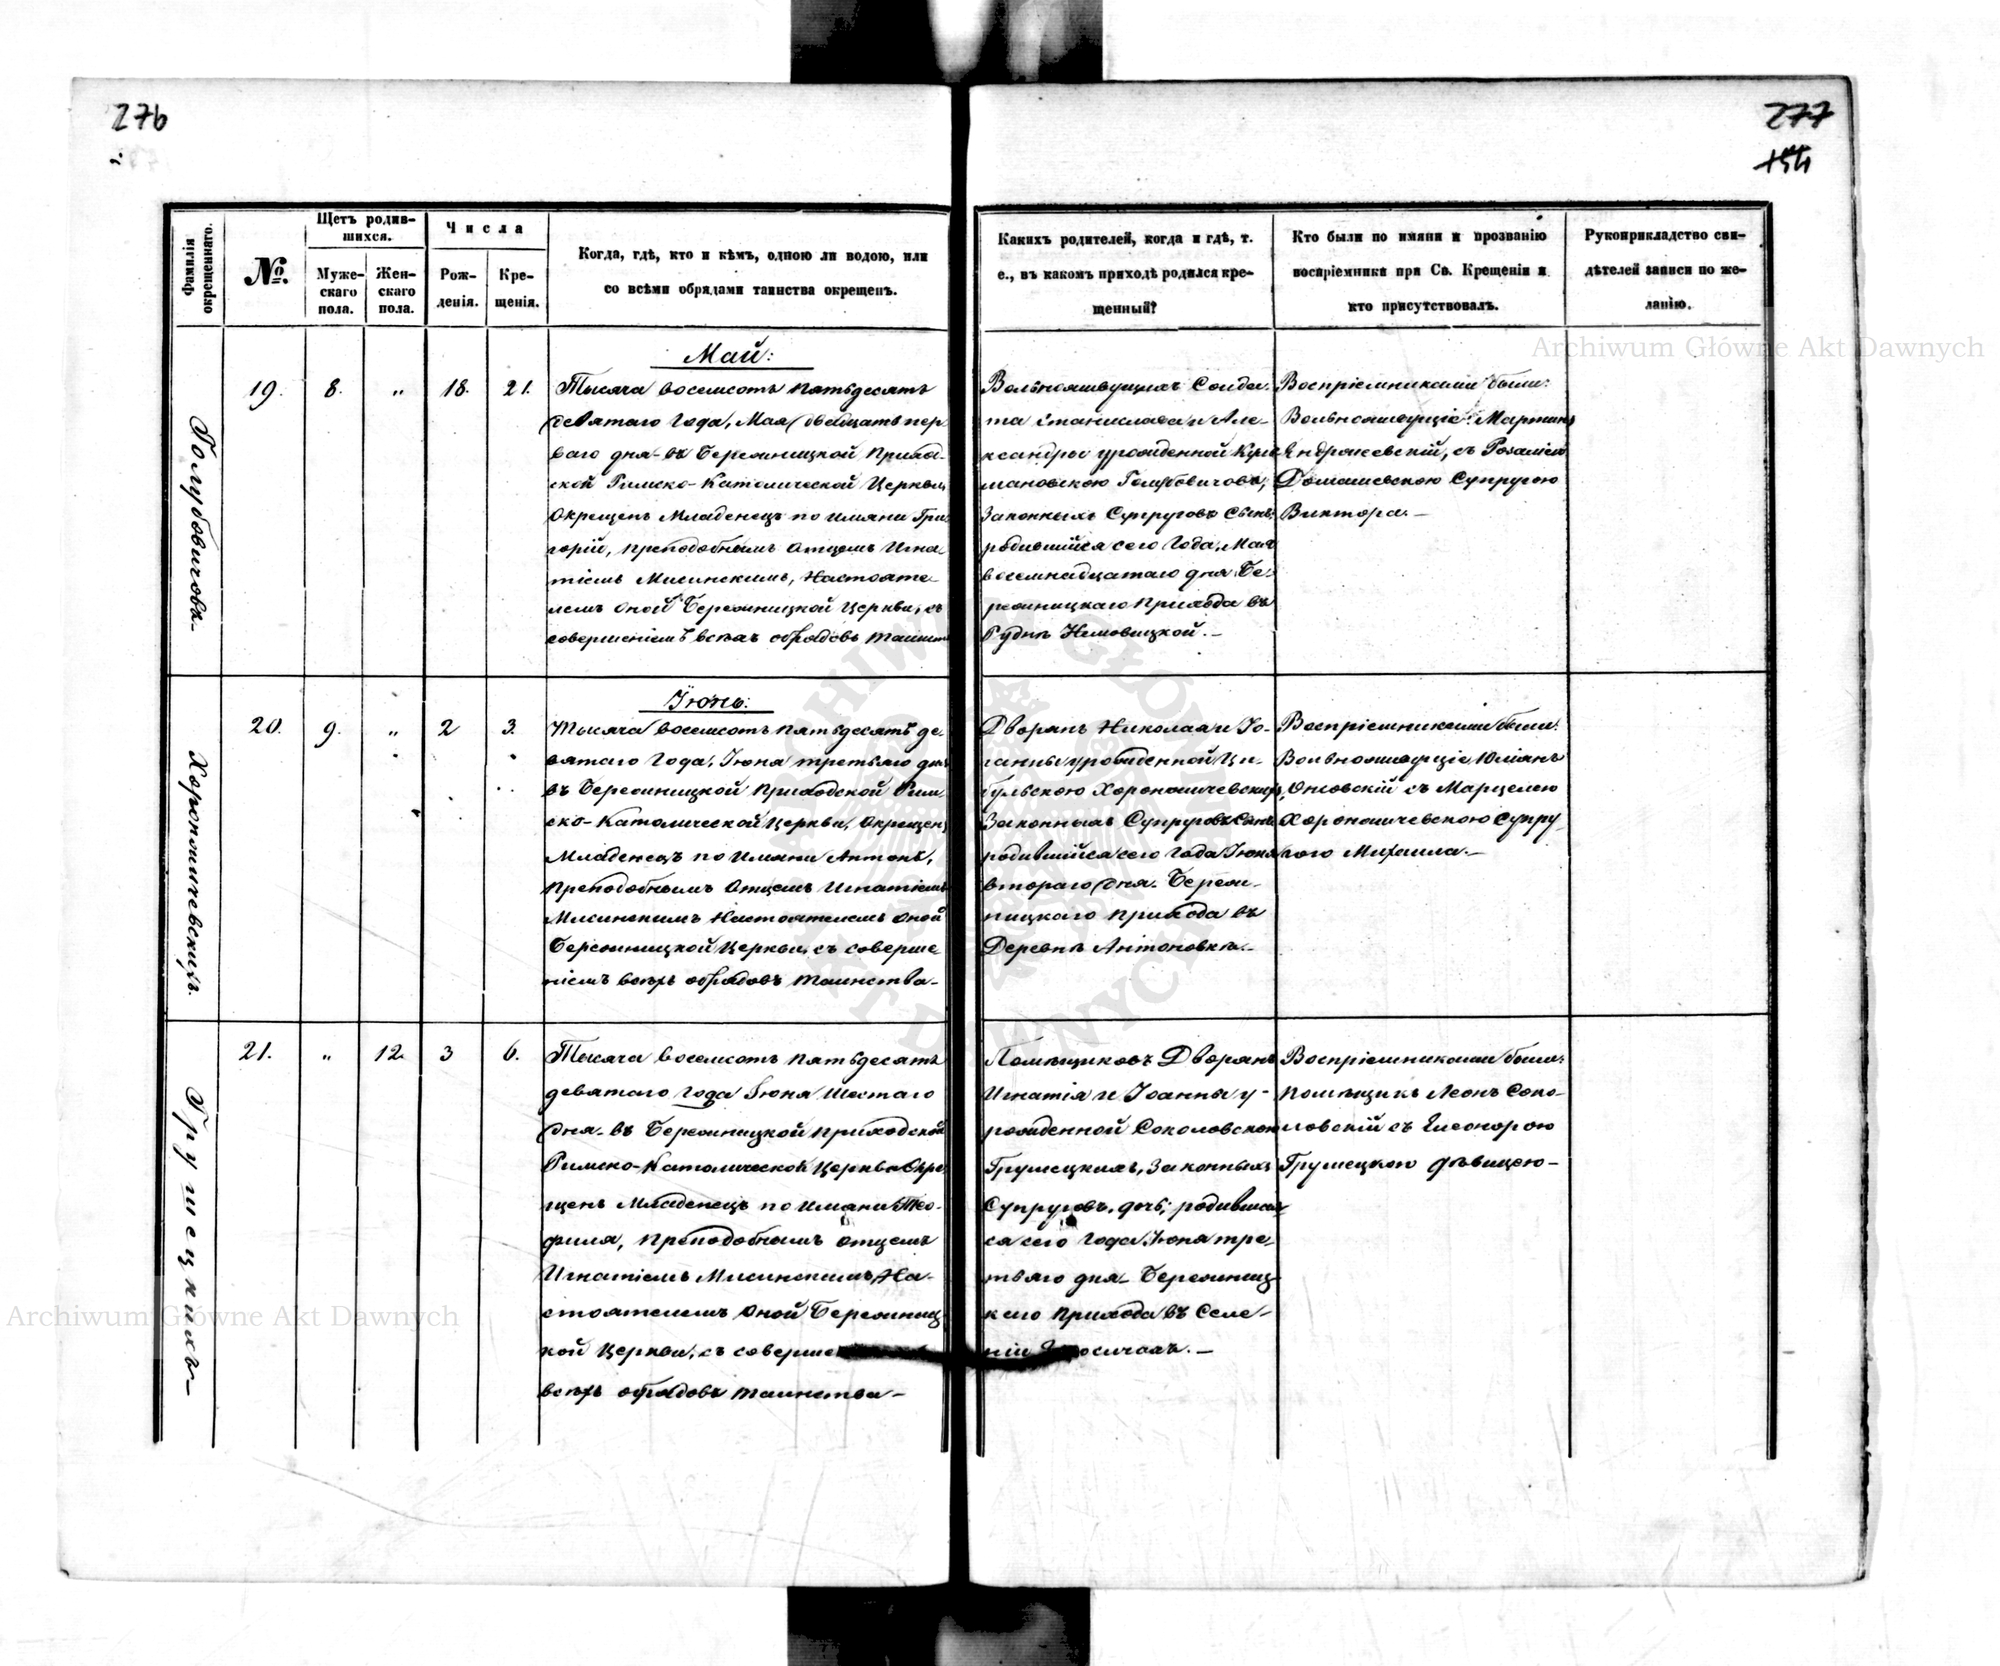 276
277
154
Фамилія окрещеннаго.
№.
Щетъ родив-
шихся.
Муже-
скаго
пола.
Жен-
скаго
пола.
Числа
Рож-
денія.
Кре-
щенія.
Когда, гдѣ, кто и кѣмъ, одною ли водою, или
со всѣми обрядами таинства окрещенъ.
Какихъ родителей, когда и гдѣ, т.
е., въ какомъ приходѣ родился кре-
щенный?
Кто были по имяни и прозванію
воспріемники при Св. Крещеніи и
кто присутствовалъ.
Рукоприкладство сви-
дѣтелей записи по же-
ланію.
Archiwum Główne Akt Dawnych
Май:
Голубовичовъ.
19.
8.
„
18.
21.
Тысяча восемсотъ пятьдесятъ
девятаго года, Мая двадцать пер-
ваго дня въ Березницкой Приход-
ской Римско-Католической Церкви,
окрещенъ Младенецъ по имяни Гри-
горій, преподобнымъ Отцемъ Игна-
тіемъ Мисинскимъ, Настояте-
лемъ оной Березницкой Церкви, съ
совершеніемъ всѣхъ обрядовъ таинст
Вольноживущихъ Солда-
та Станислава и Але-
ксандры урожденной
мановскою Голубовичовъ,
Законныхъ Супруговъ Сынъ,
родившійся сего года, Мая
восемнадцатаго дня Бе-
резницкаго Прихода въ
Руднѣ Немовицкой.
Воспріемниками были:
Вольноживущіе: Мартинъ
Ендржеевскій, съ Розаліею
Домашевскою Супругою
Виктора.
Іюнь:
Хороможичевскихъ.
20.
9.
„
2
3.
Тысяча восемсотъ пятьдесятъ де-
вятаго года, Іюня третьяго дня
въ Березницкой Приходской Рим-
ско-Католической Церкви, Окрещенъ
Младенецъ по имяни Антонъ,
преподобнымъ Отцемъ Игнатіемъ
Мисинскимъ Настоятелемъ оной
Березницкой Церкви, съ соверше
ніемъ всѣхъ обрядовъ таинства
Дворянъ Николая и Іо-
ганны урожденной Ци-
бульскою
Законныхъ Супруговъ Сынъ
родившійся сего года Іюня
втораго дня. Березн-
ницкаго прихода въ
Деревнѣ Антоновкѣ.
Воспріемниками были:
Вольноживущіе Юліанъ
съ Марцелею
Супру-
гою Михаила.
Грушецкихъ
21.
„
12.
3
6.
Тысяча восемсотъ пятьдесятъ
девятаго года Іюня шестаго
дня въ Березницкой приходской
Римско-Католической Церкви Окре-
щенъ Младенецъ по имяни Тео-
филя, преподобнымъ отцемъ
Игнатіемъ Мисинскимъ На-
стоятелемъ оной Березниц-
кой Церкви, съ соверше
всѣхъ обрядовъ таинства
Помѣщиковъ Дворянъ
Игнатія и Іоанны у-
рожденной Соколовскою
Грушецкихъ, Законныхъ
Супруговъ, дочь, родивша-
ся сего года Іюня тре-
тьяго дня Березниц-
каго прихода въ Селе-
ніи
Воспріемниками были:
помѣщикъ Леонъ Соко-
ловскій съ Елеонорою
Грушецкою дѣвицею
Archiwum Główne Akt Dawnych